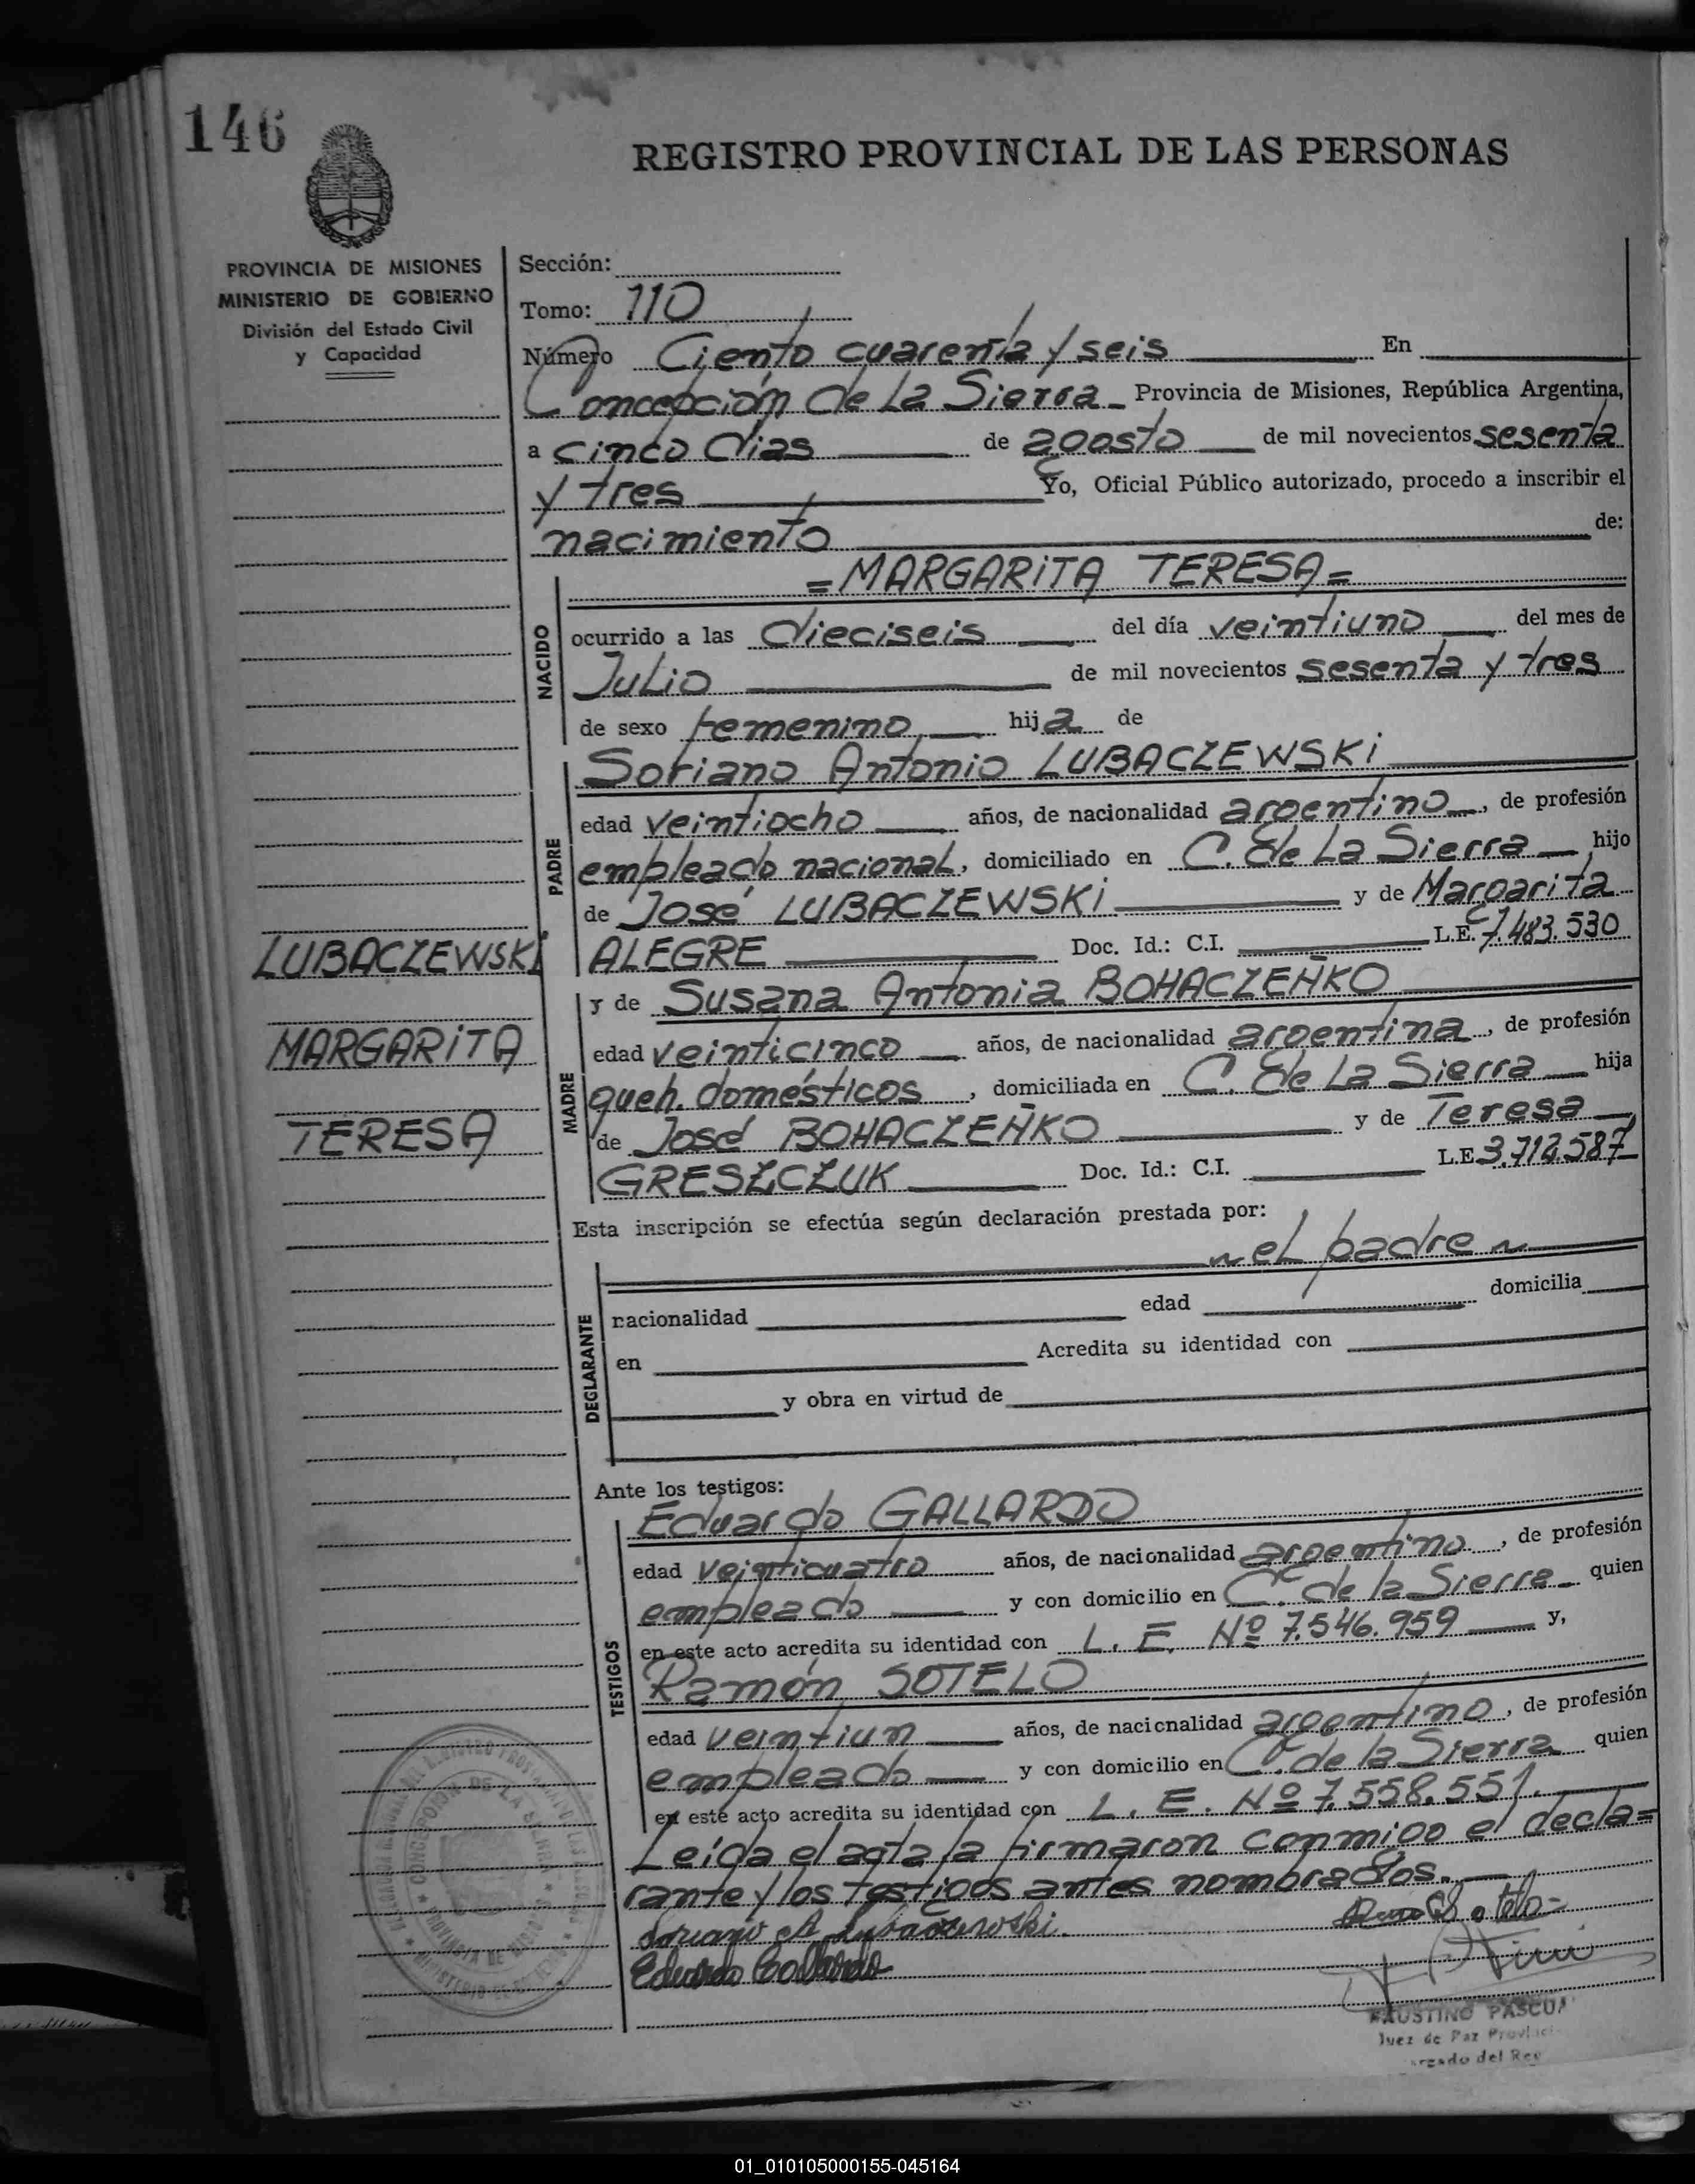 146
REGISTRO PROVINCIAL DE LAS PERSONAS
PROVINCIA DE MISIONES
MINISTERIO DE GOBIERNO
División del Estado Civil
y Capacidad
Sección:
Tomo: 110
Número Ciento cuarenta y seis En
Concepción de La Sierra Provincia de Misiones, República Argentina,
a cinco días de agosto de mil novecientos sesenta
y tres Yo, Oficial Público autorizado, procedo a inscribir el
nacimiento de:
=MARGARITA TERESA=
NACIDO
ocurrido a las dieciseis del día veintiuno del mes de
Julio de mil novecientos sesenta y tres
de sexo femenino hija de
PADRE
Soriano Antonio LUBACZEWSKI
edad veintiocho años, de nacionalidad argentino, de profesión
empleado nacional, domiciliado en C. de La Sierra hijo
de José LUBACZEWSKI y de Margarita
ALEGRE Doc. Id.: C.I. L.E. 7.483.530
LUBACZEWSKI
MARGARITA
TERESA
MADRE
y de Susana Antonia BOHACZEÑKO
edad veinticinco años, de nacionalidad argentina, de profesión
queh. domésticos, domiciliada en C. de La Sierra hija
de José BOHACZEÑKO y de Teresa
GRESZCZUK Doc. Id.: C.I. L.E. 3.712.587
Esta inscripción se efectúa según declaración prestada por:
el padre
DECLARANTE
nacionalidad edad domicilia
en Acredita su identidad con
y obra en virtud de
Ante los testigos:
TESTIGOS
Eduardo GALLARDO
edad veinticuatro años, de nacionalidad argentino, de profesión
empleado y con domicilio en C. de la Sierra quien
en este acto acredita su identidad con L. E. Nº 7.546.959 y,
Ramón SOTELO
edad veintiun años, de nacionalidad argentino, de profesión
empleado y con domicilio en C. de la Sierra quien
en este acto acredita su identidad con L. E. Nº 7.558.551.
Leída el acta la firmaron conmigo el decla=
rante y los testigos antes nombrados.
Soriano A Lubaczewski
Eduardo Gallardo
CONCEPCION DE LA SIERRA
PROVINCIA DE
FAUSTINO PASCUA
Juez de Paz
del Reg
01_010105000155-045164